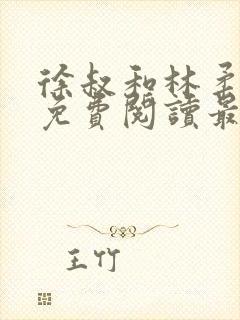 徐叔和林柔
免費閱讀最
王竹